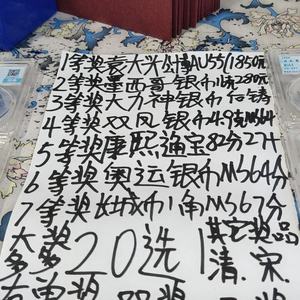 1等奖袁大头AU55/1850元
2等奖墨西哥银币1克280元
3等奖大力神银币
4等奖双凤银币4.9克MS64
5等奖康熙通宝82分27+
6等奖奥运银币MS64分
7等奖长城币1角MS67分
大奖20选1
其它奖品
清.宋